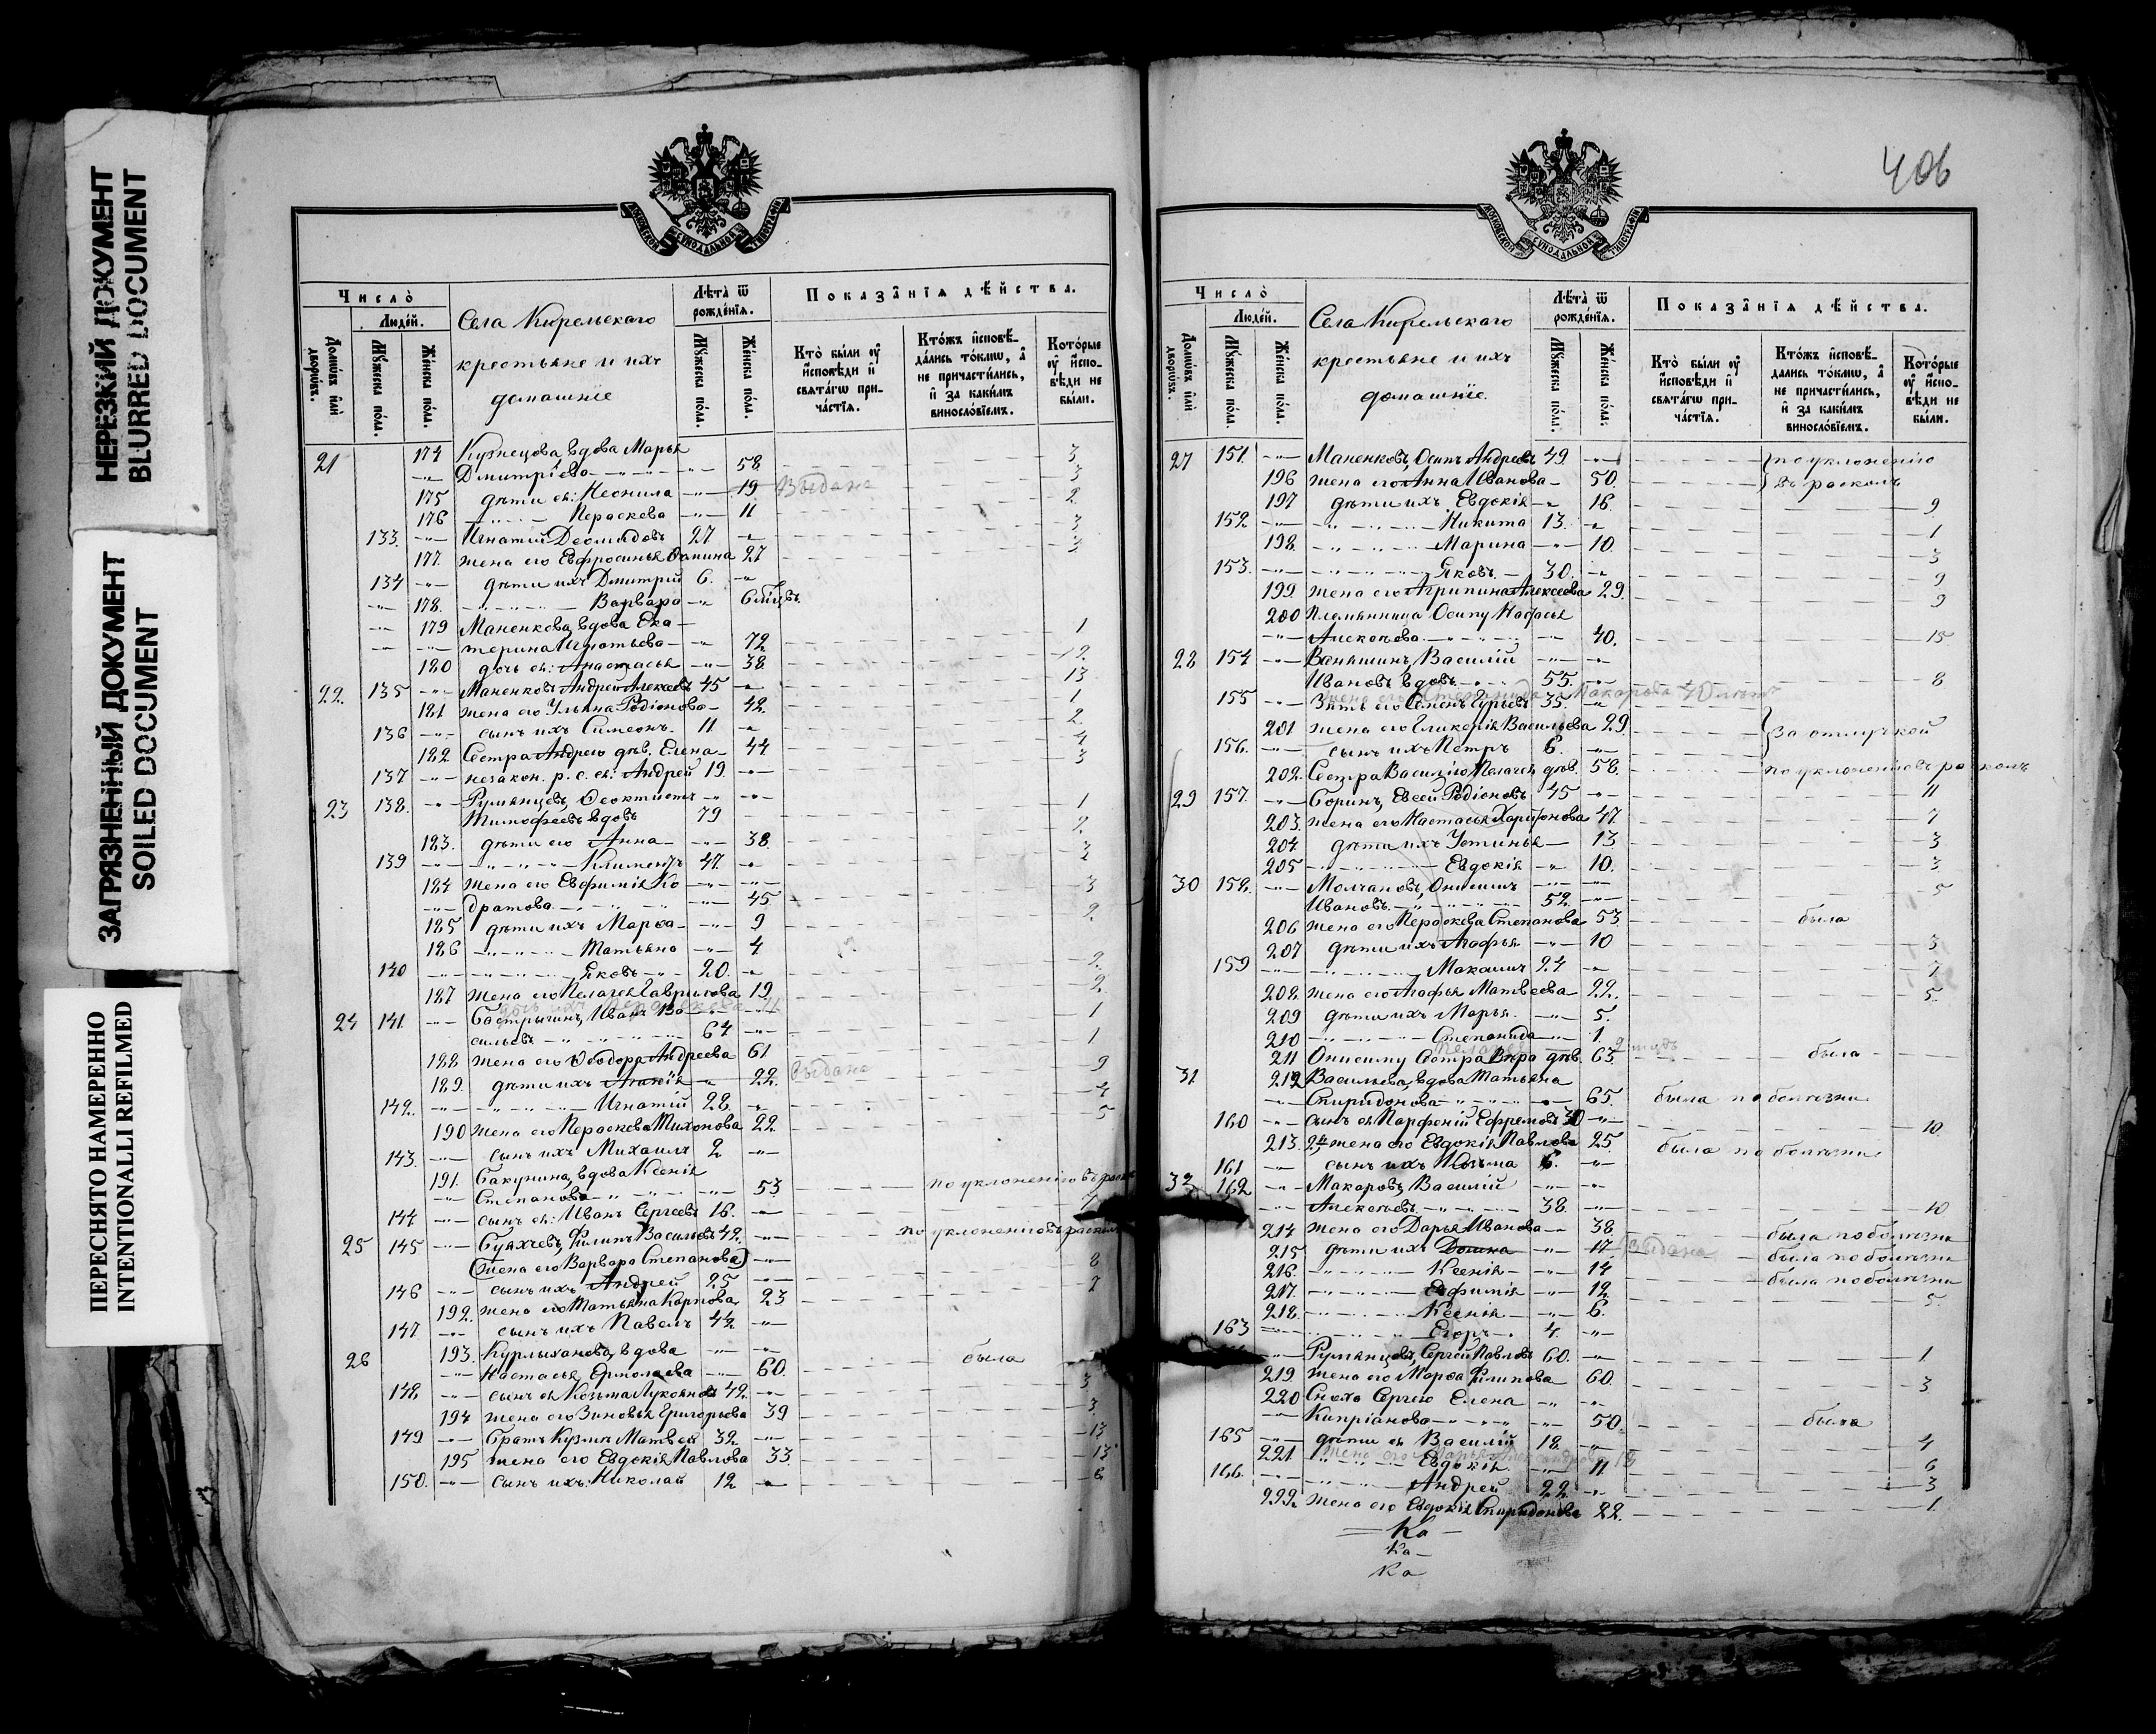 НЕРЕЗКИЙ ДОКУМЕНТ
BLURRED DOCUMENT
ЗАГРЯЗНЕННЫЙ ДОКУМЕНТ
SOILED DOCUMENT
ПЕРЕСНЯТО НАМЕРЕННО
INTENTIONALLI REFILMED
МОСКОВСКОЙ СѴНОДАЛЬНОЙ ТИПОГРАФІИ
Число̀
Людей.
Домѡвъ и҆лѝ дворѡвъ.
Мꙋжеска пола.
Женска пола.
Села Кирельскаго
крестьяне и ихъ
домашніе
Лѣта ѿ рожденїѧ.
Мꙋжеска пола.
Женска пола.
Показанїѧ дѣйства.
Кто̀ были ᲂу҆ и҆сповѣди и҆ свѧтагѡ причастїѧ.
Ктожъ и҆сповѣдались токмѡ, а҆ не причастились, и҆ за какимъ винословїемъ.
Которые ᲂу҆ и҆сповѣди не были.
21 174 Кузнецова, вдова Марья 3
Дмитріева 58 3
175 дѣти ея: Неонила 19 Выдана 2
176 Параскева 11
133. Игнатій Деомидовъ 27 3
177. жена его Евфросинья Фомина 27
134 дѣти ихъ Дмитрій 6.
178. Варвара 6 мѣсцъ.
179 Маненкова, вдова Ека-
терина Игнатьева 72 1
180 дочь ея: Анастасья 38. 12.
22. 135 Маненковъ Андрей Алексеевъ 45 13
181 жена его Ульяна Родіонова 42. 1
136 сынъ ихъ Симеонъ. 11 2
182 Сестра Андрею дѣв. Елена 44 4
137 незакон. р. с. ея: Андрей 19. 3
23 138. Румянцевъ, Ѳеоктистъ
Тимофеевъ вдовъ 79 1
183. дѣти его Анна 38. 2.
139 Климентъ 47.
184 жена его Евфимія Ко-
дратова 45 3
185 дѣти ихъ Марѳа 9 2.
186 Татьяна 4
140 Яковъ 20. 2.
187 жена его Пелагея Гаврилова 19. 2
24 141. Бастрыгинъ, Иванъ Ва- 1
сильевъ 64 1
188 жена его Ѳеодора Андреева 61
189. дѣти ихъ Агаѳія 22. Выдана 9
142. Игнатій 28. 4
190 жена его Пераскева Тихонова 22. 5
143. сынъ ихъ Михаилъ 2
191. Бакунина, вдова Ксенія
Степанова 53 по уклоненію въ раск
144 сынъ ея: Иванъ Сергеевъ 16. 7
25 145 Филипъ Васильевъ 42. по уклоненію въ расколъ
(жена его Варвара Степанова) 8
146 сынъ ихъ Андрей 25 7
192. жена его Татьяна Карпова 23
147. сынъ ихъ Павелъ
26 193. Курлыханова, вдова
Настасья Ермолаева 60. была
148. сынъ ея Козьма Лукояновъ 42. 3
194 жена его Зиновья Григорьева 39 3
149 Братъ Кузьмы Матвей 32. 13
195 жена его Евдокія Павлова 33. 13
150. сынъ ихъ: Николай 12 6
406
МОСКОВСКОЙ СѴНОДАЛЬНОЙ ТИПОГРАФІИ
Число̀
Людей.
Домѡвъ и҆лѝ дворѡвъ.
Мꙋжеска пола.
Женска пола.
Села Кирельскаго
крестьяне и ихъ
домашніе.
Лѣта ѿ рожденїѧ.
Мꙋжеска пола.
Женска пола.
Показанїѧ дѣйства.
Кто̀ были ᲂу҆ и҆сповѣди и҆ свѧтагѡ причастїѧ.
Ктожъ и҆сповѣдались токмѡ, а҆ не причастились, и҆ за какимъ винословїемъ.
Которые ᲂу҆ и҆сповѣди не были.
27 151. Маненковъ, Осипъ Андреевъ 49. по уклоненію
196 жена его Анна Иванова 50. въ расколъ
197 дѣти ихъ Евдокія 16. 9
152 Никита 13. 1
198. Марина 10. 3
153. Яковъ 30. 9
199 жена его Агрипина Алексеева 29. 9
200 Племянница Осипу Настасья
Алексеева 40. 15
28 154 Ванюшинъ, Василій
Ивановъ вдовъ 55. 8
жена его Степанида Макарова 40 лѣтъ
155 Зять его Семенъ Гурьевъ 35.
201 жена его Гликерія Васильева 29. За отлучкой
156. сынъ ихъ Петръ 6.
202. Сестра Василію Пелагея дѣв. 58. по уклоненію въ расколъ
29 157. Боринъ, Евсей Родіоновъ 45 11
203. жена его Настасья Харитонова 47 7
204 дѣти ихъ Устинья 13 3
205 Евдокія 10. 3
30 158. Молчановъ, Онисимъ 5
Ивановъ 52.
206 жена его Пераскева Степанова 53 была
207 дѣти ихъ Агафья 10 3
159 Максимъ 24 7
208. жена его Агафья Матвеева 22. 5.
209 дѣти ихъ Марья. 5.
210 Степанида 1.
211 Онисиму Сестра Вѣра дѣв. 63. была
31 212 Васильева, вдова Татьяна
Спиридонова 65. была по болѣзни
160 сынъ ея Парфеній Ефремовъ 30 10
213. 2я жена его Евдокія Павлова 25. была по болѣзни
161 сынъ ихъ Козьма 6.
32 162 Макаровъ, Василій
Алексеевъ 38. 10
214 жена его Дарья Иванова 38. была по болѣзни
215 дѣти ихъ Домна 17. Выдана была по болѣзни
216. Ксенія 14 была по болѣзни
217. Евфимія 12 5.
218. Ксенія 6.
163 Егоръ 4.
Румянцовъ, Сергей Павловъ 60. 1
219. жена его Марѳа Филипова 60. 3
220 Сноха Сергею Елена
Кипріанова 50. была
165 дѣти ея Василій 18. 4
221 Евдокія 11. 6
166. Андрей 22. 3
222 жена его Евдокія Спиридонова 22. 1.
Ка
Ка
Ка